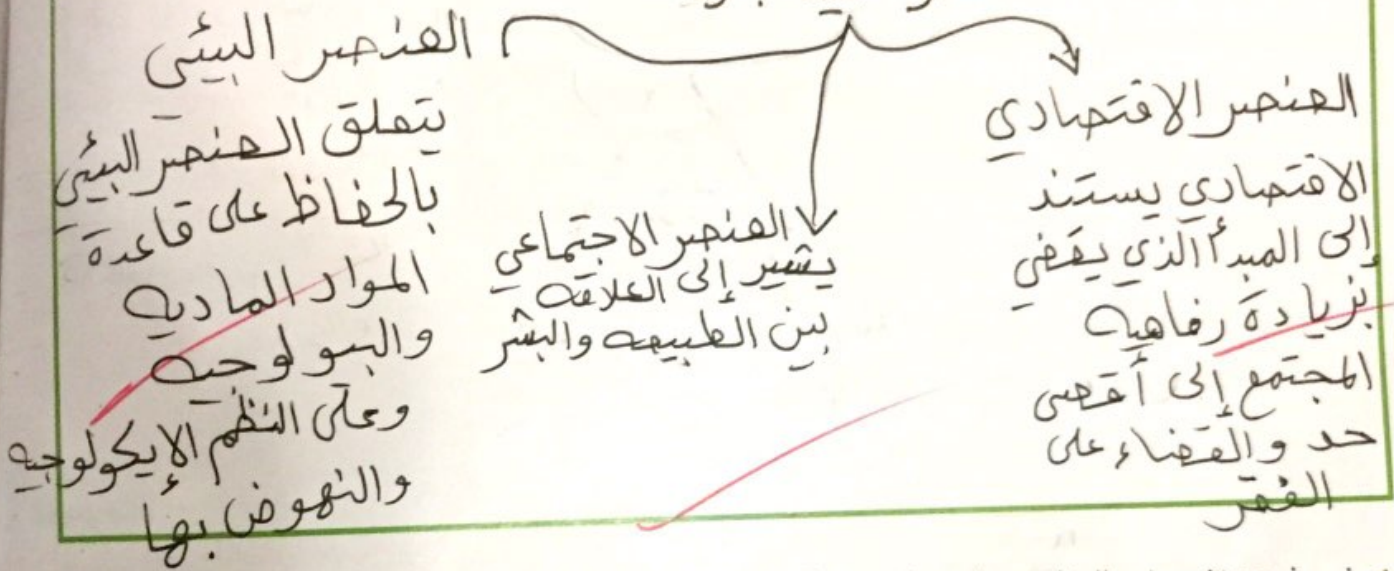 العنصر الاقتصادي
الاقتصادي يستند
إلى المبدأ الذي يقضي
بزيادة رفاهيه
المجتمع إلى أقصى
حد والقضاء على
الفقر
العنصر الاجتماعي
يشير إلى العلاقه
بين الطبيعه والبشر
العنصر البيئي
يتعلق العنصر البيئي
بالحفاظ على قاعدة
المواد الماديه
والبيولوجيه
وعلى النظم الإيكولوجيه
والنهوض بها